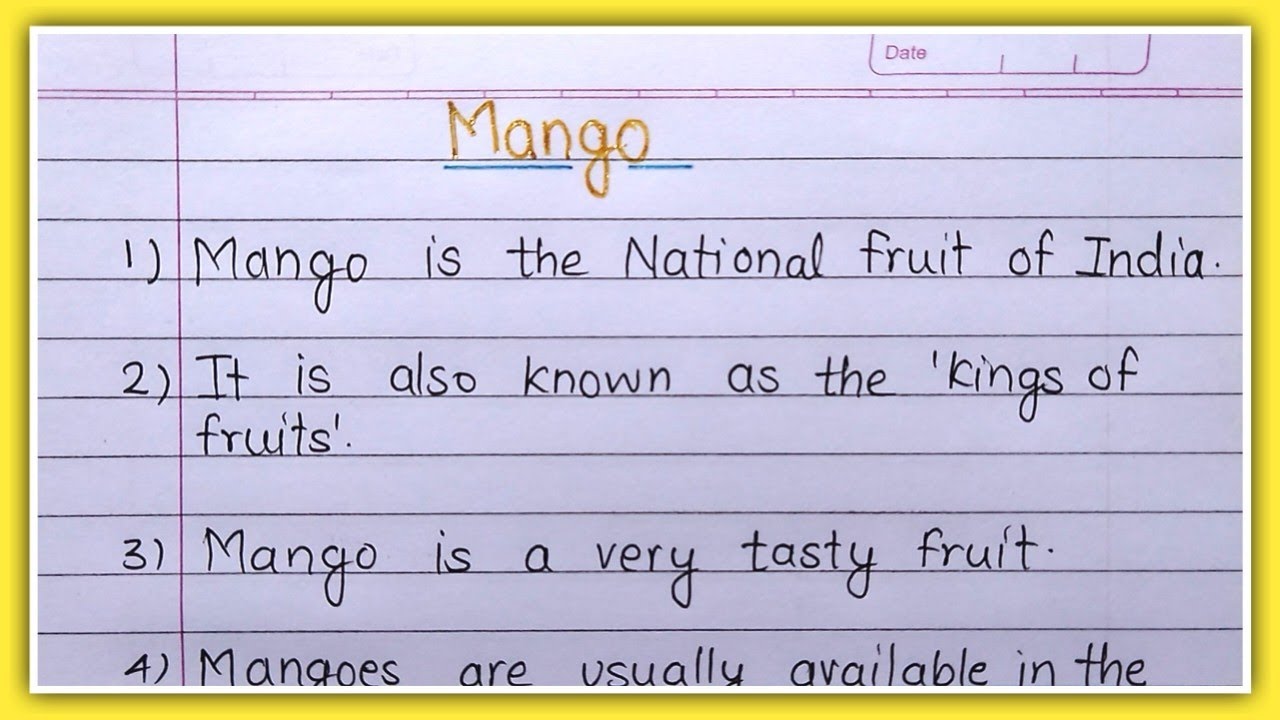 Date
Mango
1) Mango is the National fruit of India.
2) It is also known as the 'kings of
fruits'.
3) Mango is a very tasty fruit.
4) Mangoes are usually available in the